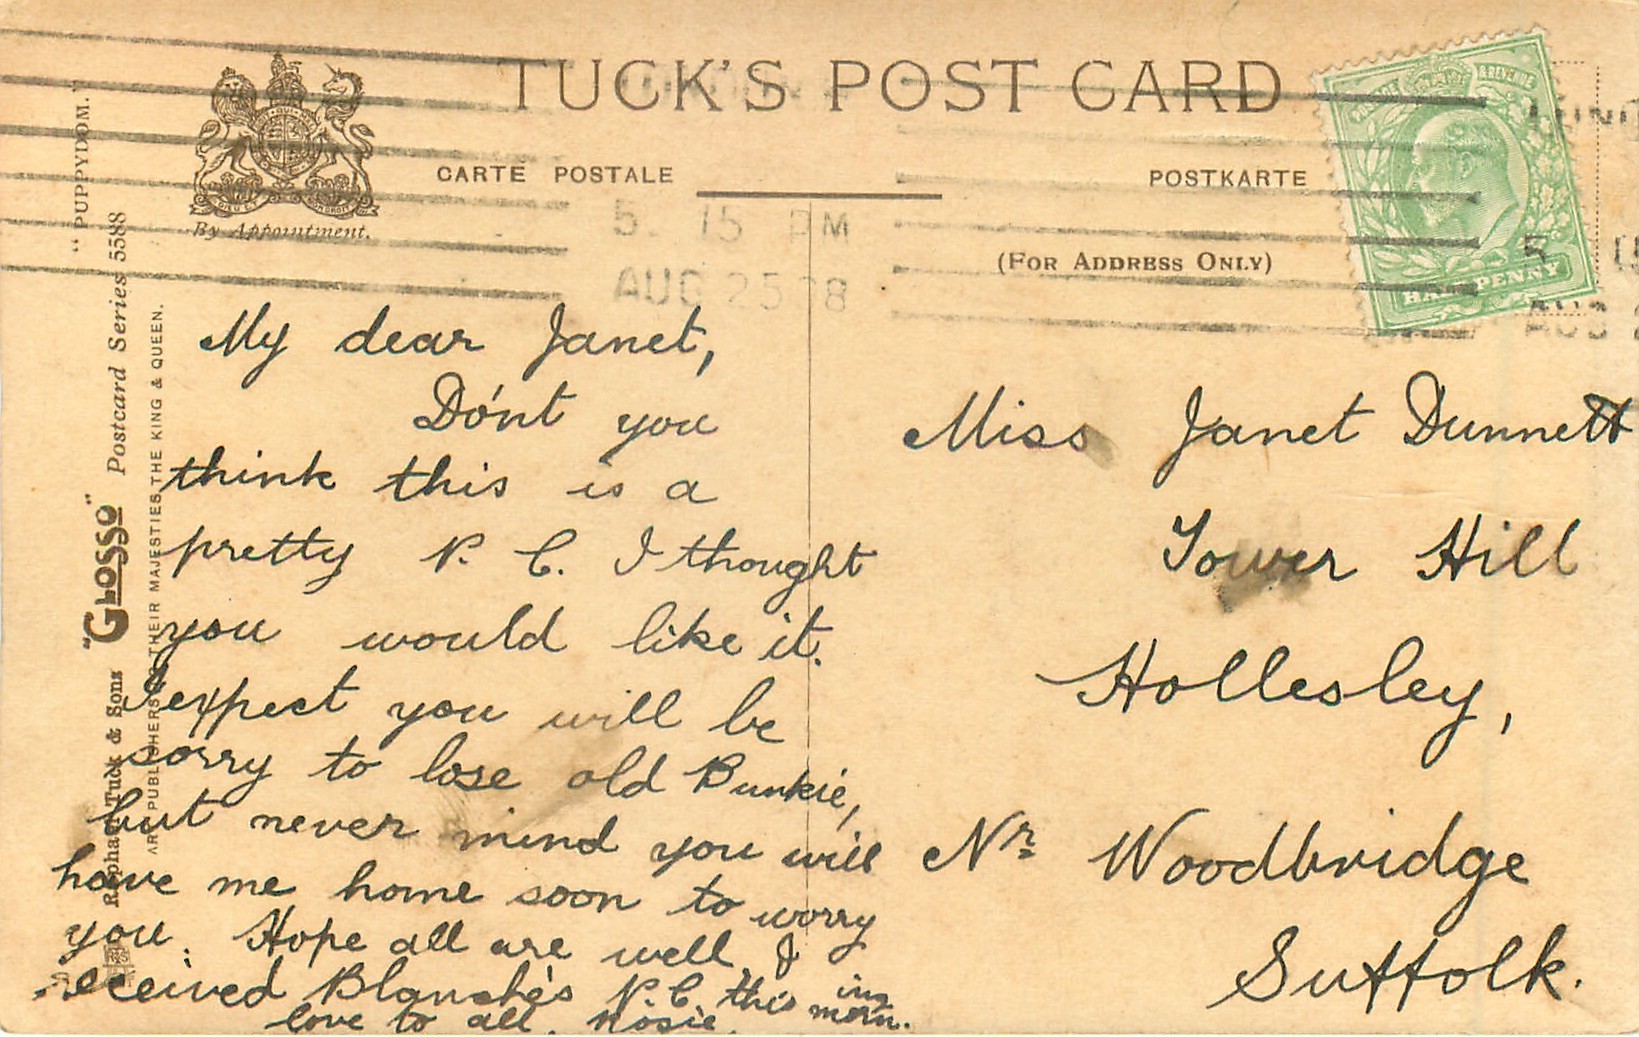 TUCK'S POST CARD
CARTE POSTALE
POSTKARTE
(FOR ADDRESS ONLY)
By Appointment.
"PUPPYDOM."
Raphael Tuck & Sons "GLOSSO" Postcard Series 5588
ART PUBLISHERS TO THEIR MAJESTIES THE KING & QUEEN.
5. 15 PM
AUG 25 08
POSTAGE & REVENUE
HALFPENNY
My dear Janet,
Do'nt you
think this is a
pretty P. C. I thought
you would like it.
I expect you will be
sorry to lose old Bunkie,
but never mind you will
have me home soon to worry
you. Hope all are well I
received Blanche's P.C. this morn.ing
love to all. Rosie.
Miss Janet Dunnett
Tower Hill
Hollesley,
Nr Woodbridge
Suffolk.